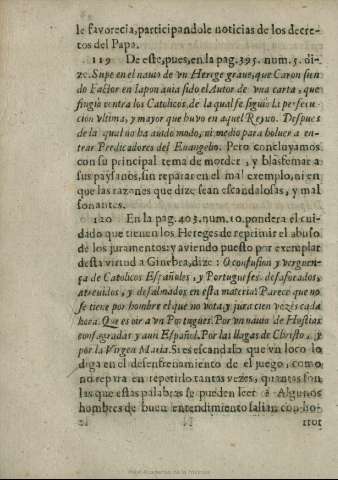 le favorecia, participandole noticias de los decre-
tos del Papa.
119 De este, pues, en la pag. 395. num. 5. di-
ze. Supe en el nauio de vn Herege graue, que Caron sien
do Factor en Iapon auia sido el Autor de vna carta, que
fingiò contra los Catolicos, de la qual se siguiò la persecu
cion vltima, y mayor que huvo en aquel Reyno. Despues
de la qual no ha auido modo, ni medio para boluer a en-
trar Predicadores del Euangelio. Pero concluyamos
con su principal tema de morder, y blasfemar a
sus paysanos, sin reparar en el mal exemplo, ni en
que las razones que dize sean escandalosas, y mal
sonantes.
120 En la pag. 403. num. 10. pondera el cui
dado que tienen los Hereges de reprimir el abuso
de los juramentos: y aviendo puesto por exemplar
desta virtud a Ginebra, dize: O confusion y verguen-
ça de Catolicos Españoles, y Portugueses desaforados,
atreuidos, y desalmados en esta materia! Parece que no
se tiene por hombre el que no vota, y jura cien vezes cada
hora. Que es oir a vn Portugues. Por vn nauio de Hostias
consagradas y a un Español. Por las llagas de Christo, y
por la Virgen Maria. Si es escandalo que vn loco lo
diga en el desenfrenamiento de el juego, como
no repara en repetirlo tantas vezes, quantas son
las que estas palabras se pueden leer? Algunos
hombres de buen entendimiento salian con ho-
rror